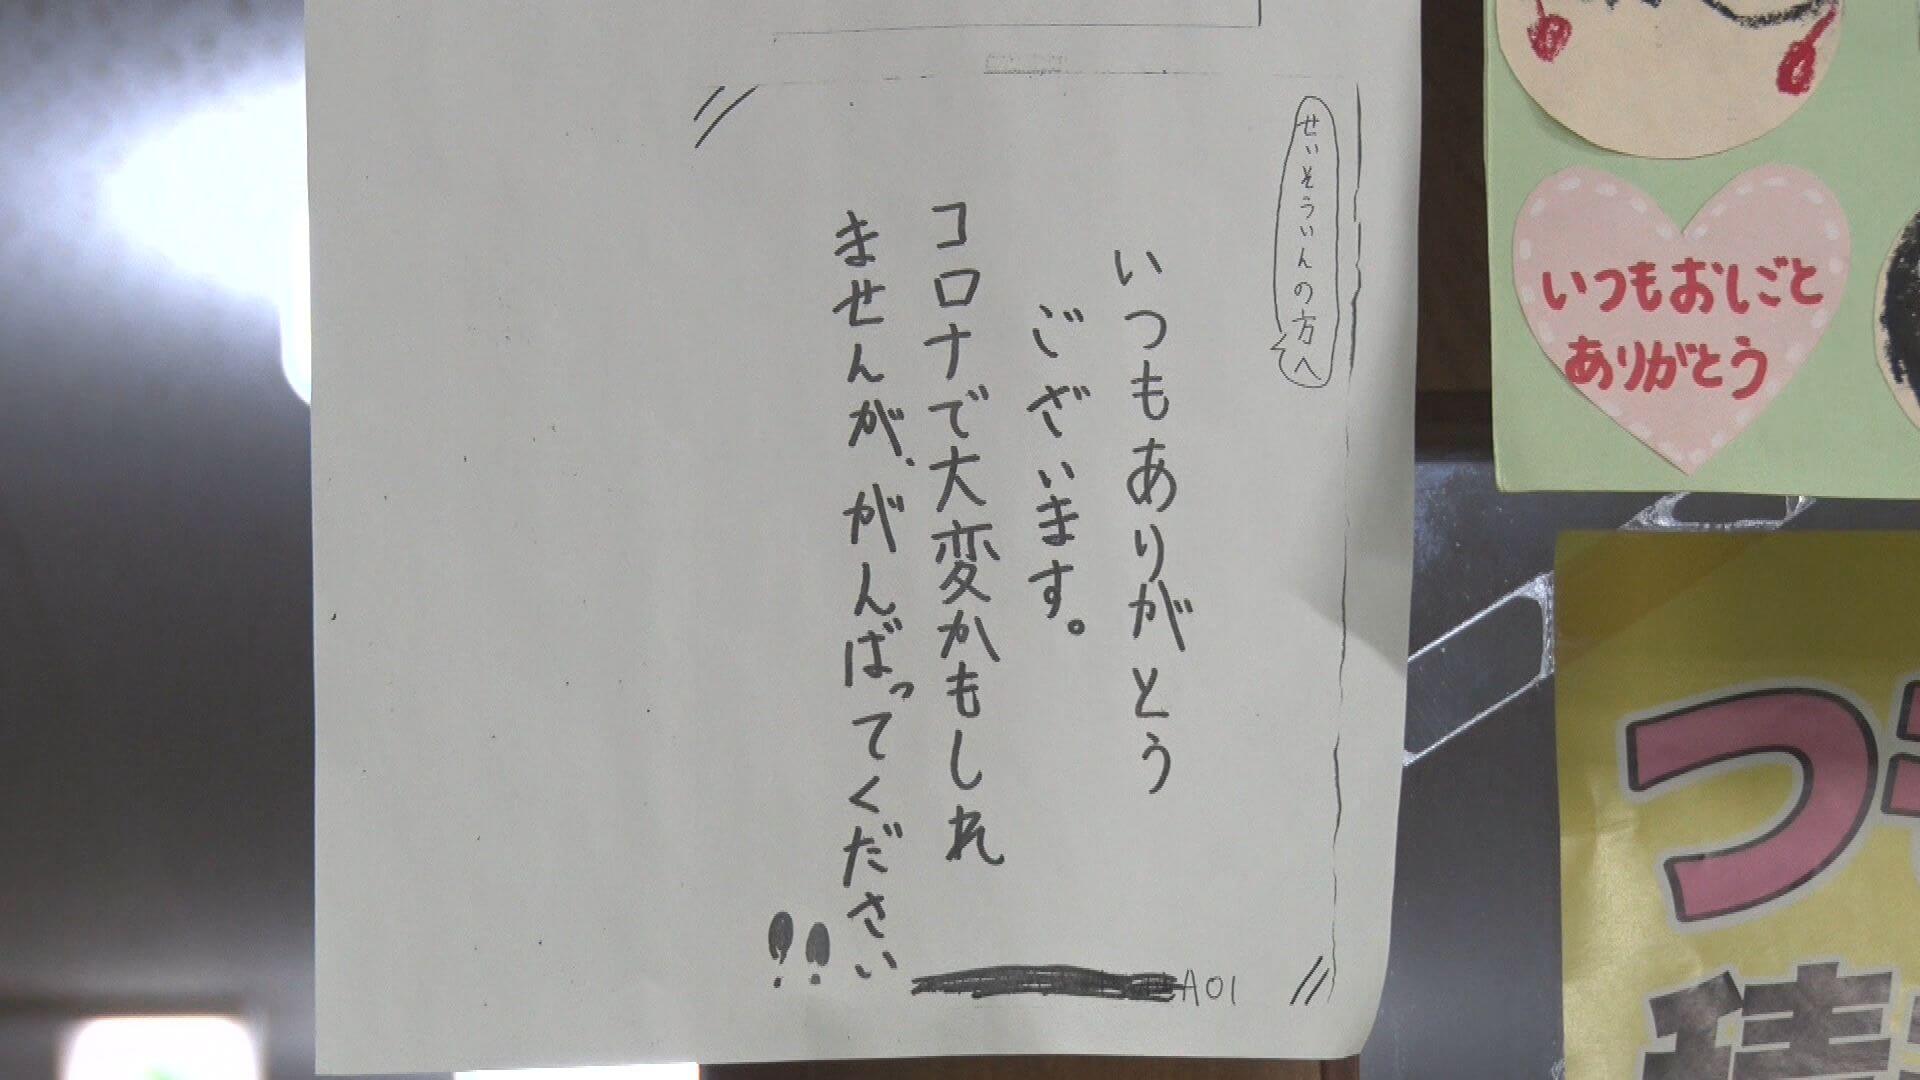 せいそういんの方へ
いつもありがとう
ございます。
コロナで大変かもしれ
ませんが、がんばってください!!
A01
いつもおしごと
ありがとう
つ